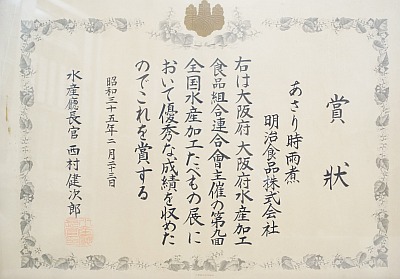 賞状
あさり時雨煮
明治食品株式会社
右は大阪府 大阪府水産加工
食品組合連合會主催の第九回
全国水産加工たべもの展に
おいて優秀な成績を収めた
のでこれを賞する
昭和三十五年二月二十三日
水産廳長官 西村健次郎